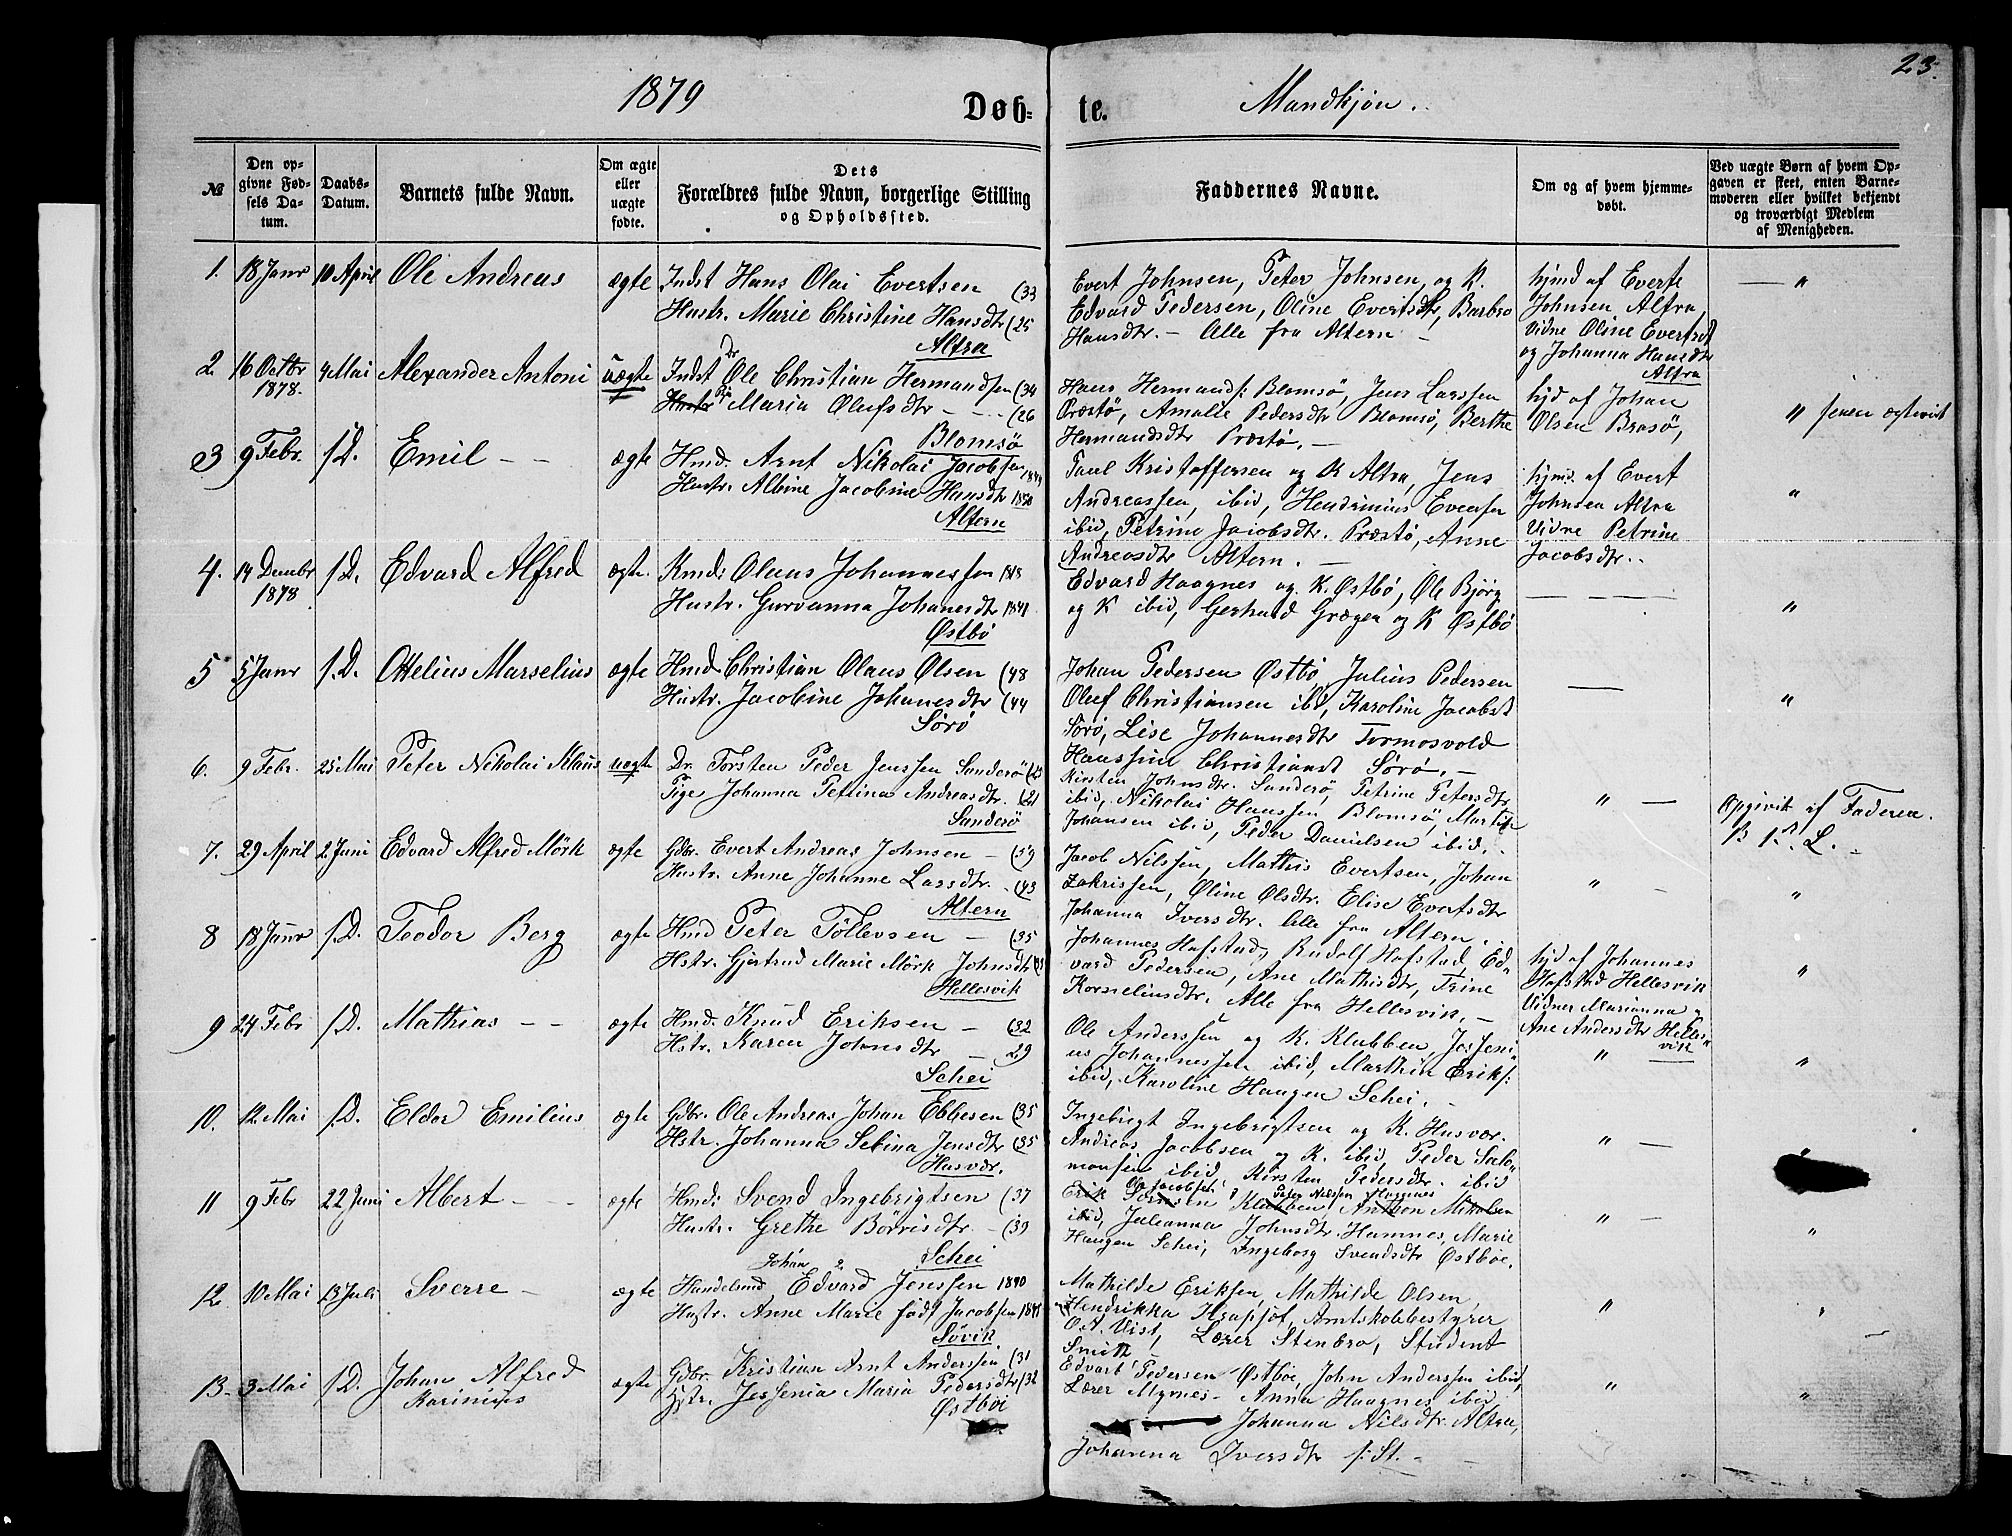 23.
1879
Døb-
te.
Mandkjøn.
№
Den op-
givne Fød-
sels Da-
tum.
Daabs-
Datum.
Barnets fulde Navn.
Om ægte
eller
uægte
fødte.
Dets
Forældres fulde Navn, borgerlige Stilling
og Opholdssted.
Faddernes Navne.
Om og af hvem hjemme-
døbt.
Ved uægte Børn af hvem Op-
gaven er skeet, enten Barne-
moderen eller hvilket bekjendt
og troværdigt Medlem
af Menigheden.
1. 18 Janr 10 April Ole Andreas ægte Indst Hans Olai Evertsen (33
Hustr. Marie Christine Hansdtr (25
Altra
Evert Johnsen, Peter Johnsen, og K.
Edvard Pedersen, Oline Evertsdtr, Barbro
Hansdtr. - Alle fra Altern -
hjmd af Evert
Johnsen Altra,
Vidne Oline Evertsdt
og Johanna Hansdtr
Altra
"
2. 16 Octbr 1878. 4 Mai Alexander Antoni uægte Indst Dr Ole Christian Hermandsen (34
Hustr Pige Maria Olufsdtr - - - (26
Blomsö
Hans Hermands: Blomsö, Jens Larssen
Præstö, Amalie Pedersdtr Blomsö, Berthe
Hermandsdtr Præstö. -
hjd af Johan
Olsen Brasö,
"
3 9 Febr. s.D. Emil - - ægte Hmd. Arnt Nikolai Jacobsen 1844
Hustr. Albine Jacobine Hansdtr 1850
Altern
Paul Kristoffersen og K Altra, Jens
Andreassen, ibid, Hendrinius Evensen
ibid, Petrine Jacobsdtr. Præstö, Anne
Andreasdtr Altern. -
hjmd. af Evert
Johnsen Altra
Vidne Petrine
Jacobsdtr..
"
4. 14 Dembr 1878 s.D. Edvard Alfred ægte. Kmd: Olaus Johannessen 1818
Hustr. Gurvanna Johanesdtr 1841
Østbö
Edvard Haagnes og K. Østbö, Ole Bjørg
og K ibid, Gerhard Grægen og K Østbö
"
5 5 Janr s.D. Ottelius Marselius ægte Hmd Christian Olaus Olsen (48
Hustr. Jacobine Johanesdtr (44
Sörö
Johan Pedersen Østbö Julius Pedersen
Oluf Christiansen ibd, Karoline Jacobsd
Sörö, Lise Johannesdtr Tormosvold
Hanssine Christiansd Sörö. -
"
6. 9 Febr. 25 Mai Peter Nikolai Klaus uægte Dr. Torsten Peder Jenssen Sanderö (23
Pige Johanna Pettina Andreasdtr. (21
Sanderö
Kirsten Johnsdtr. Sanderö, Petrine Petersdtr
ibid, Nikolai Hanssen Blomsö, Martin
Johansen ibid, Peder Danielsen ibid.
"
Opgivit af Faderen.
7. 29 April 2 Juni Edvard Alfred Mörk ægte Gdbr. Evert Andreas Johnsen - (59
Hustr. Anne Johanne Larsdtr. - (43
Altern
Jacob Nilssen, Mathis Evertsen, Johan
Zakrissen, Oline Olsdtr. Elise Evertsdtr
Johanna Iversdtr. Alle fra Altern.
"
"
8 18 Janr s.D. Teodor Berg ægte Hmd Peter Töllevsen - (35
Hstr. Gjertrud Marie Mörk Johnsdtr
Hellesvik
Johannes Hofstad, Rudolf Hofstad, Ed-
vard Pedersen, Ane Mathisdtr, Trine
Korneliusdtr. Alle fra Hellesvik. -
hjd af Johannes
Hofstad Hellesvik
Vidner Marianna &
Ane Andersdtr Helles-
vik
"
9 24 Febr s.D. Mathias - - ægte Hmd. Knud Eriksen - (32
Hstr. Karen Johnsdtr - 29
Schei
Ole Anderssen og K. Klubben, Jesseni-
us Johannessen ibid, Marthin Eriks:
ibid, Karoline Haugen Schei. -
"
"
10. 12 Mai s.D. Eldor Emilius ægte Gdbr. Ole Andreas Johan Ebbesen (35
Hstr. Johanna Sebina Jensdtr (35
Husvær.
Ingebrigt Ingebrigtsen og K. Husvær.
Andreas Jacobsen og K. ibid Peder Salo-
monsen ibid Kirsten Pedersdtr. ibid
"
11 9 Febr 22 Juni Albert - - ægte Hmd: Svend Ingebrigtsen (37
Hustr. Grethe Börrisdtr. - (39
Schei
Ole Jacobsen Peter Nilssen Haagnes
Erik Klubben, Anthon Mikalsen
ibid, Julianna Johnsdtr. Hamnes, Marie
Haugen Schei, Ingeborg Svendsdtr Østbøe.
"
"
12. 10 Mai 13 Juli Sverre - ægte Handelsmd Johan Edvard Jenssen 1840
Hustr. Anne Marie född Jacobsen
Søvik
Mathilde Eriksen, Mathilde Olsen
Hendrikka, Amtskolebestyrer
O.A. Vist, Lærer Stenbro, Student
Smith
"
"
13. 3 Mai s.D. Johan Alfred
Karinius
ægte Gdbr. Kristian Arnt Anderssen (31
Hstr. Jessenia Maria Pedersdtr (32
Østbøi
Edvart Pedersen Østbøe, John Anderssen ibid,
Lærer Mynes - Anna Haagnes ibid,
Johanna Nilsdtr. Altra,
Johanna Iversdtr s:St. -
"
"